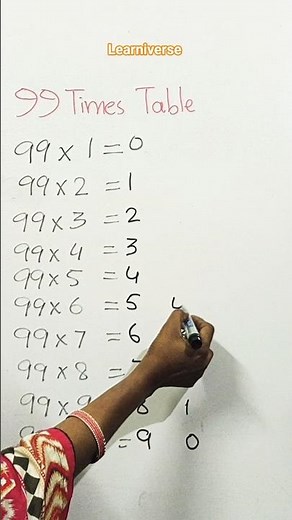 Learniverse
99 Times Table
99 x 1 = 0
99 x 2 = 1
99 x 3 = 2
99 x 4 = 3
99 x 5 = 4
99 x 6 = 5 4
99 x 7 = 6
99 x 8 =
99 x 9 8 1
= 9 0